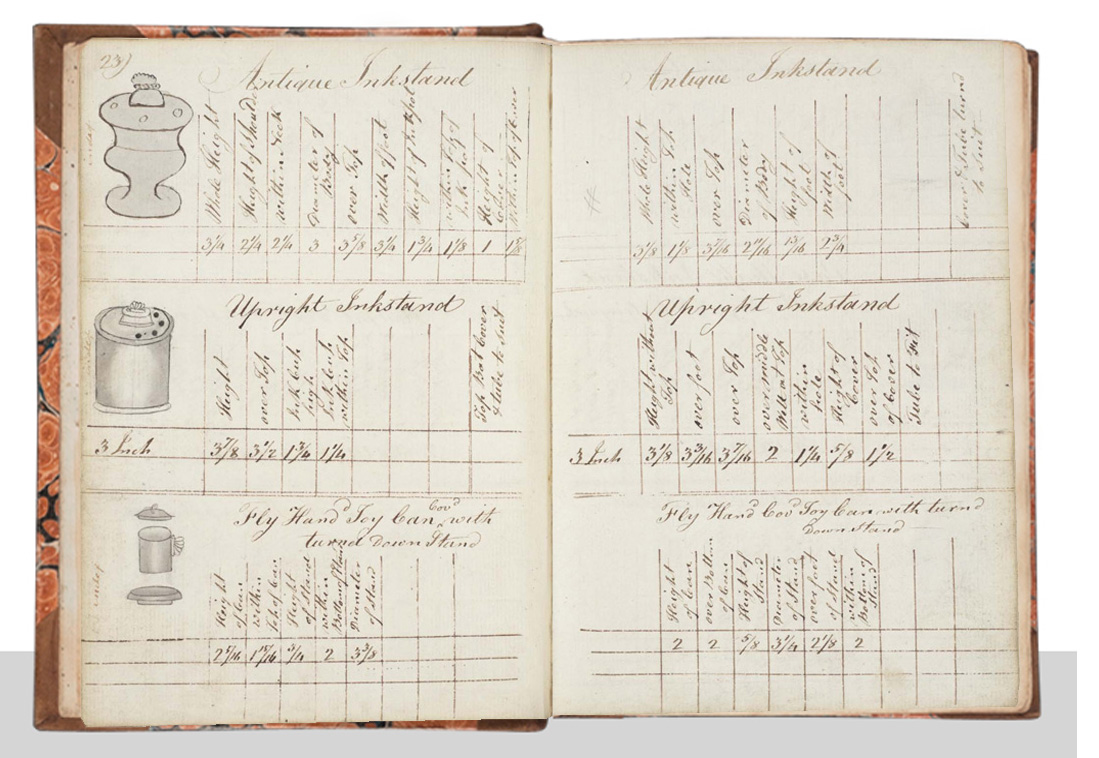 23)
Antique Inkstand
Whole Height
Height of Shoulder
within Neck
Diameter of
Body
over Top
Width of foot
Height of
within Top of
Ink pot
Height of
Cover
Within Top of
3 1/4 2 1/4 2 1/4 3 3 5/8 3 1/4 1 3/4 1 1/8 1
Upright Inkstand
Height
over Top
Ink Cup
high
Ink Cup
within Top
Top Bot Cover
& tube to suit
3 Inch 3 7/8 3 1/2 1 3/4 1 1/4
Fly Hand'd Toy Can Cov'd with
turn'd Down Stand
Height
of Can
within
Top of Can
Height
of Stand
within
Bottom of Stand
Diameter
of Stand
2 5/16 1 15/16 3/4 2 3 3/8
Antique Inkstand
Whole Height
within
Hole
over Top
Diameter
of Body
Height of
foot
Width of
foot
Cover & Tube turn'd
to Suit
3 1/8 1 1/8 3 7/16 2 11/16 1 3/16 2 3/4
Upright Inkstand
Height without
Top
over foot
over Top
over middle
Well at Top
within
hole
Height of
Cover
over Top
of Cover
Tube to Fit
3 Inch 3 1/8 3 3/16 3 7/16 2 1 1/4 5/8 1 1/2
Fly Hand'd Cov'd Toy Can with turn'd
Down Stand
Height
of Can
over Bottom
of Can
Height of
Stand
Diameter
of Stand
over foot
of Stand
within
Bottom of
Stand
2 2 5/8 3 1/4 2 1/8 2